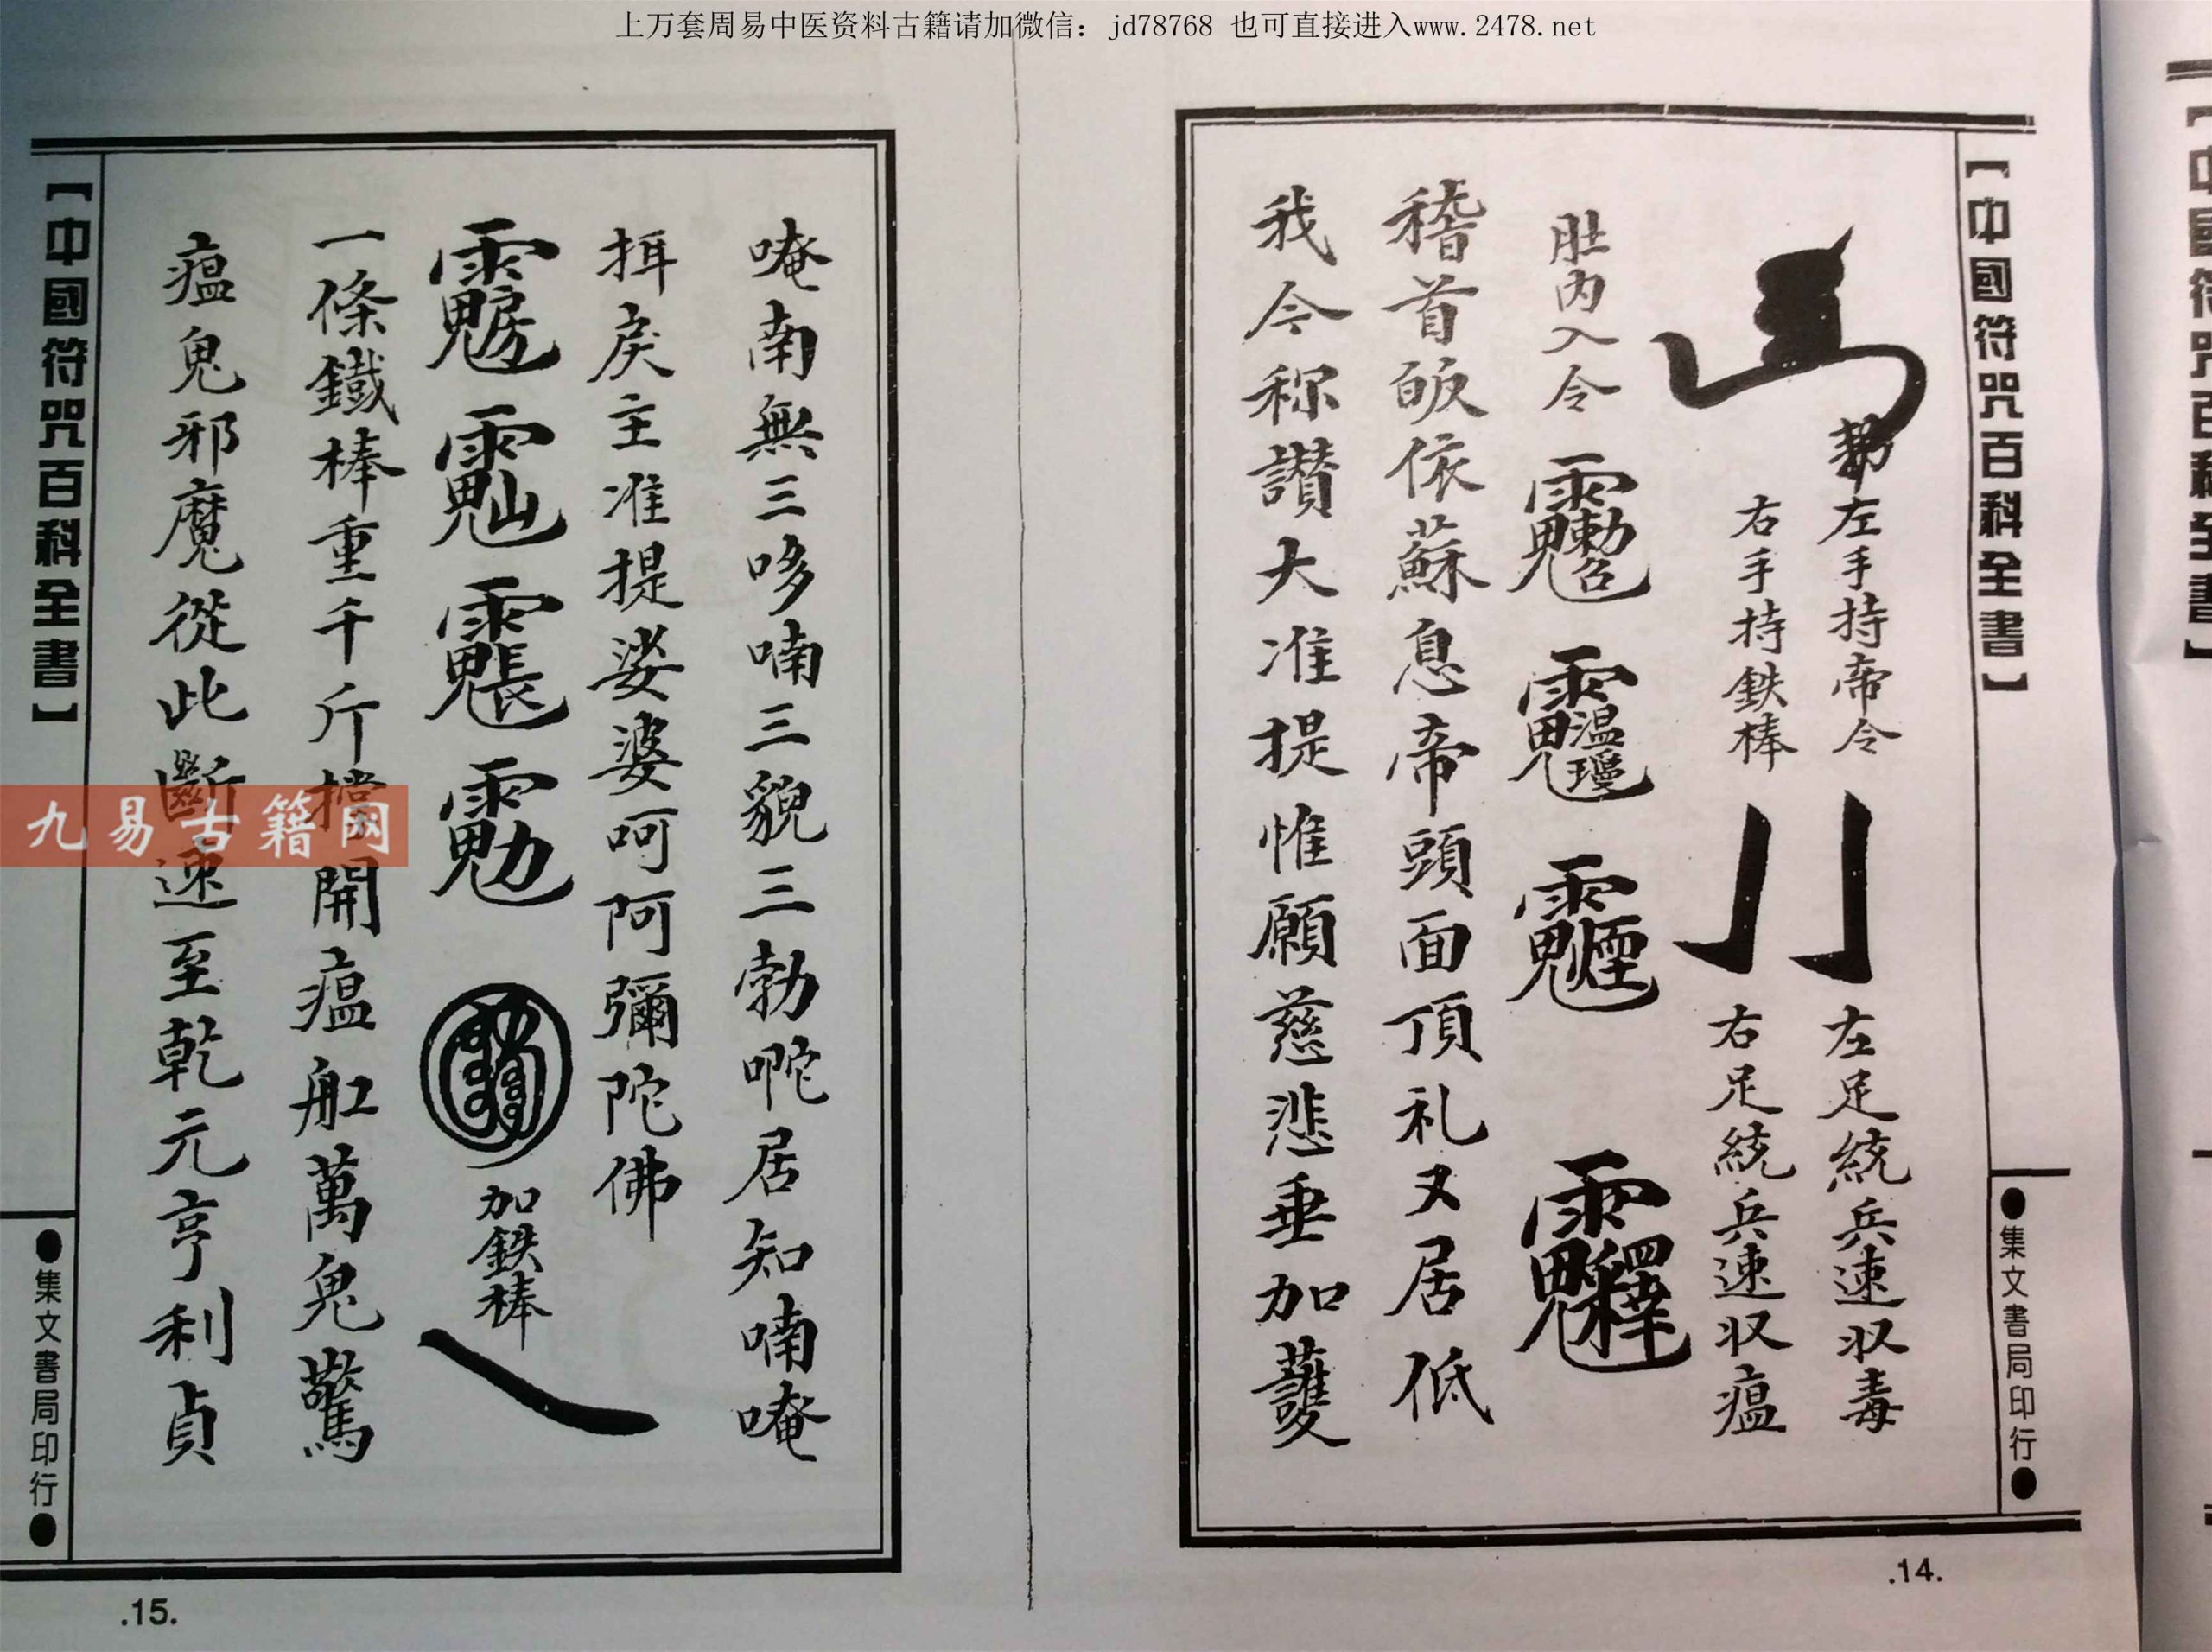 上万套周易中医资料古籍请加微信：jd78768 也可直接进入www.2478.net
【中國符咒百科全書】
●集文書局印行●
左手持帝令
左足統兵速収毒
右手持鉄棒
右足統兵速収瘟
肚内入令
稽首皈依蘇息帝頭面頂礼又居低
我令称讃大准提惟願慈悲垂加護
.14.
唵南無三哆喃三貌三勃嚨居知喃唵
戾主准提娑婆呵阿彌陀佛
加鉄棒
一條鐵棒重千斤擋開瘟舡萬鬼驚
瘟鬼邪魔從此斷速至乾元亨利貞
【中國符咒百科全書】
●集文書局印行●
.15.
九易古籍网